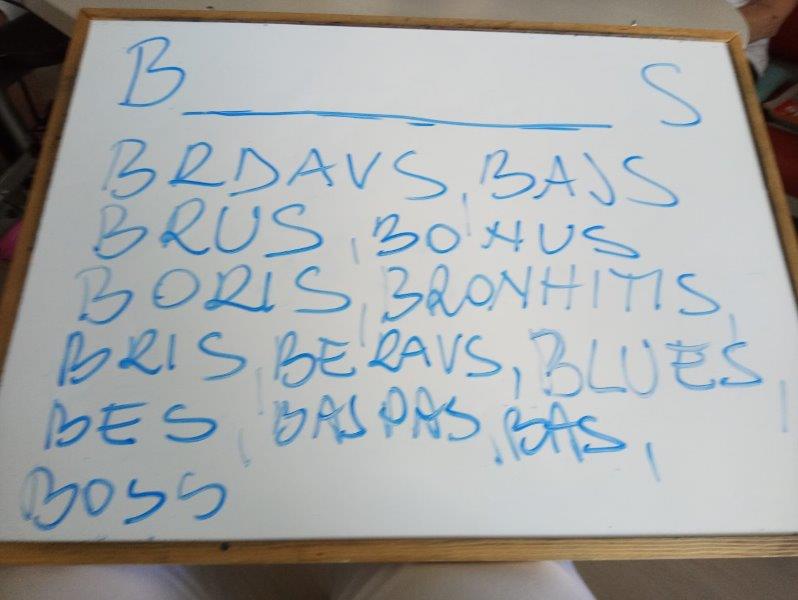 B ________ S
BRDAVS, BAJS
BRUS, BONUS
BORIS, BRONHITIS,
BRIS, BERAVS, BLUES,
BES, BAJPAS, BAS,
BOSS